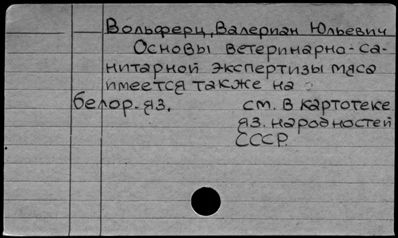 Вольферц, Валериан Юльевич
Основы ветеринарно-са-
нитарной экспертизы мяса
имеется также на
белор. яз. см. в картотеке
яз. народностей
СССР.